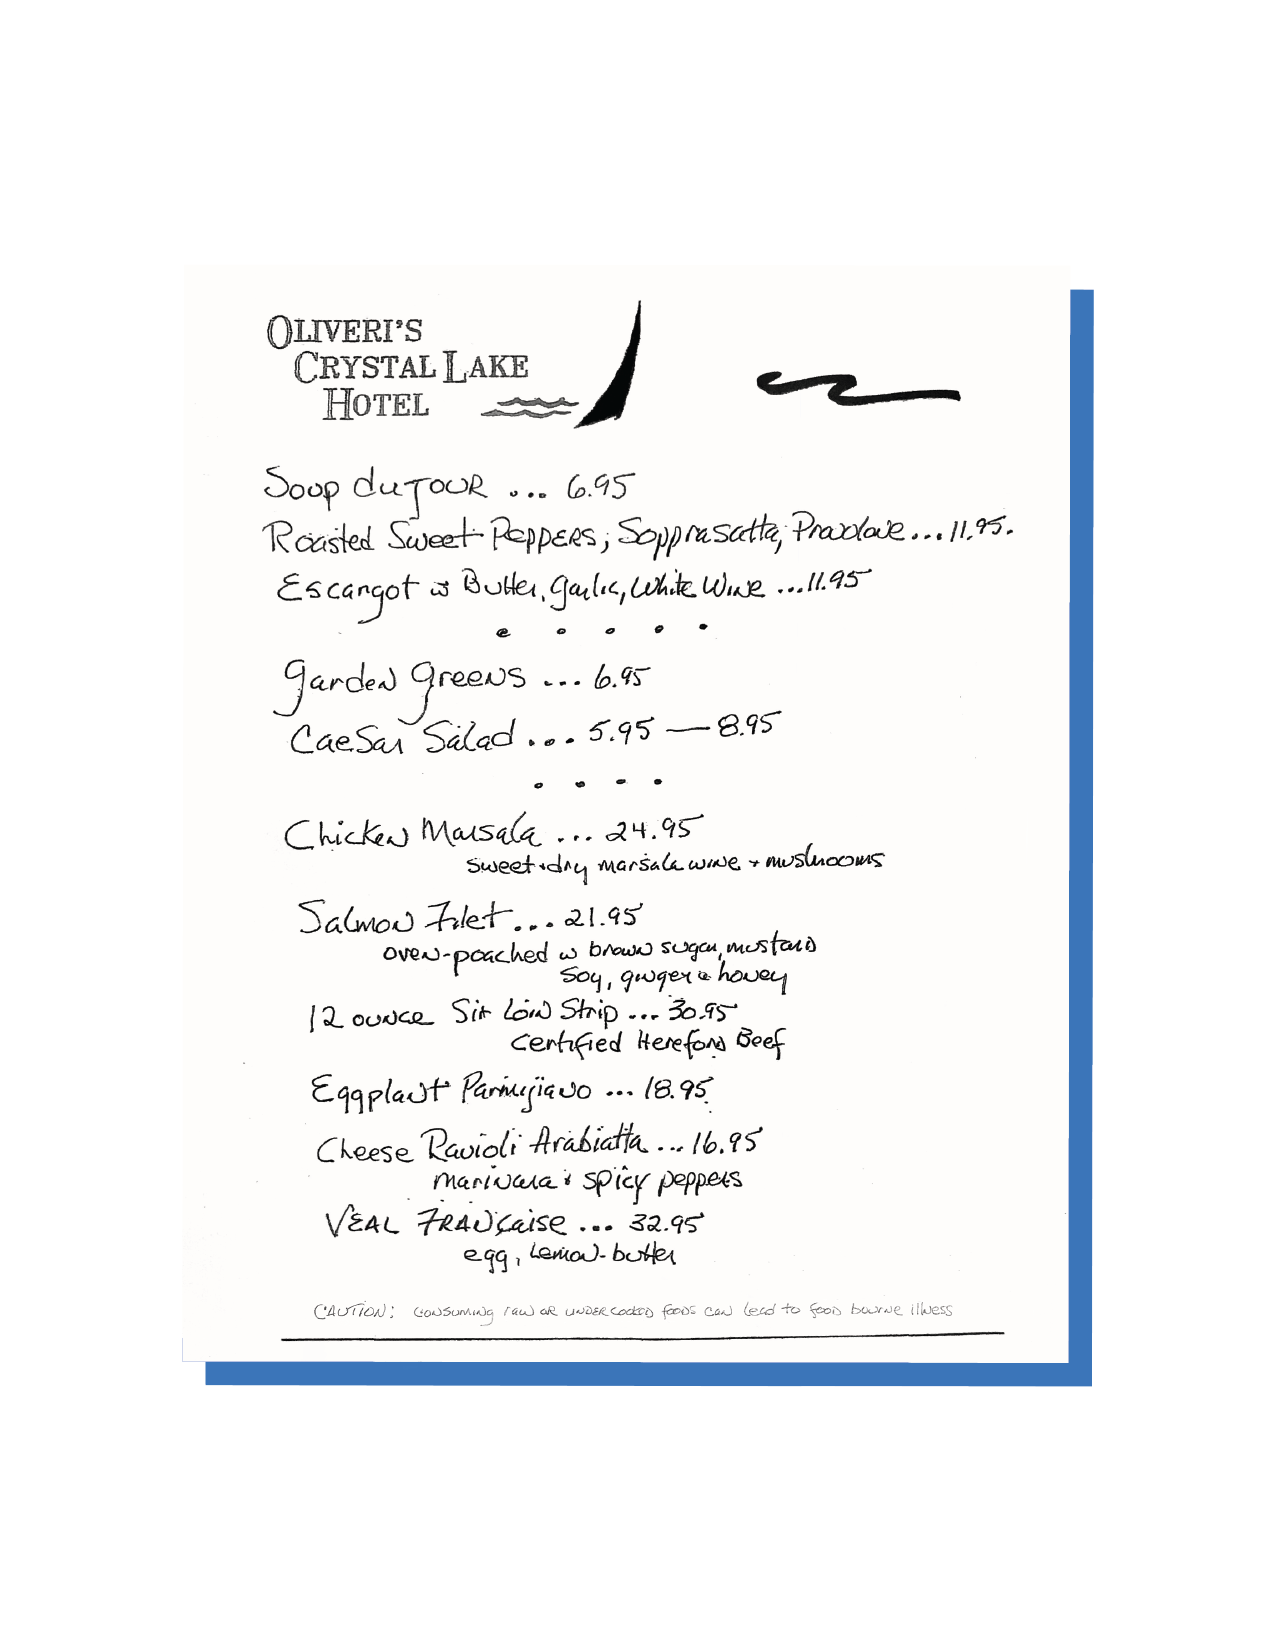 OLIVERI'S
CRYSTAL LAKE
HOTEL
Soup du Jour ... 6.95
Roasted Sweet Peppers, Sopprasatta, Provolone ... 11.95.
Escargot w Butter, Garlic, White Wine ... 11.95
Garden Greens ... 6.95
Caesar Salad ... 5.95 — 8.95
Chicken Marsala ... 24.95
sweet + dry marsala wine + mushrooms
Salmon Filet ... 21.95
oven-poached w brown sugar, mustard
soy, ginger & honey
12 ounce Sir Loin Strip ... 30.95
Certified Hereford Beef
Eggplant Parmigiano ... 18.95
Cheese Ravioli Arabiatta ... 16.95
marinara & spicy peppers
VEAL FRANÇaise ... 32.95
egg, lemon-butter
CAUTION: consuming raw or undercooked foods can lead to food bourne illness